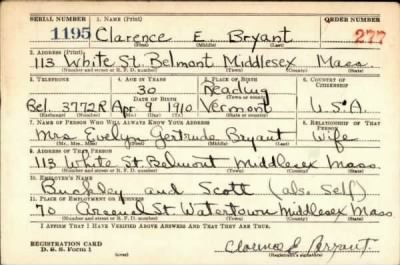 SERIAL NUMBER 1. NAME (Print) ORDER NUMBER
1195 Clarence E. Bryant 277
(First) (Middle) (Last)
2. ADDRESS (Print)
113 White St. Belmont Middlesex Mass.
(Number and street or R. F. D. number) (Town) (County) (State)
3. TELEPHONE 4. AGE IN YEARS 5. PLACE OF BIRTH 6. COUNTRY OF CITIZENSHIP
30 Reading
DATE OF BIRTH
Bel. 3772R Apr 9 1910 Vermont U.S.A.
7. NAME OF PERSON WHO WILL ALWAYS KNOW YOUR ADDRESS 8. RELATIONSHIP OF THAT PERSON
Mrs Evelyn Gertrude Bryant Wife
(Mr., Mrs., Miss) (First) (Middle) (Last)
9. ADDRESS OF THAT PERSON
113 White St. Belmont Middlesex Mass.
(Number and street or R. F. D. number) (Town) (County) (State)
10. EMPLOYER'S NAME
Buckley and Scott (also Self)
11. PLACE OF EMPLOYMENT OR BUSINESS
70 Arsenal St Watertown Middlesex Mass
(Number and street or R. F. D. number) (Town) (County) (State)
I AFFIRM THAT I HAVE VERIFIED ABOVE ANSWERS AND THAT THEY ARE TRUE.
REGISTRATION CARD
D. S. S. Form 1
Clarence E. Bryant